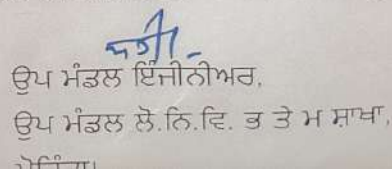 ਉਪ ਮੰਡਲ ਇੰਜੀਨੀਅਰ,
ਉਪ ਮੰਡਲ ਲੋ.ਨਿ.ਵਿ. ਭ ਤੇ ਮ ਸ਼ਾਖਾ,